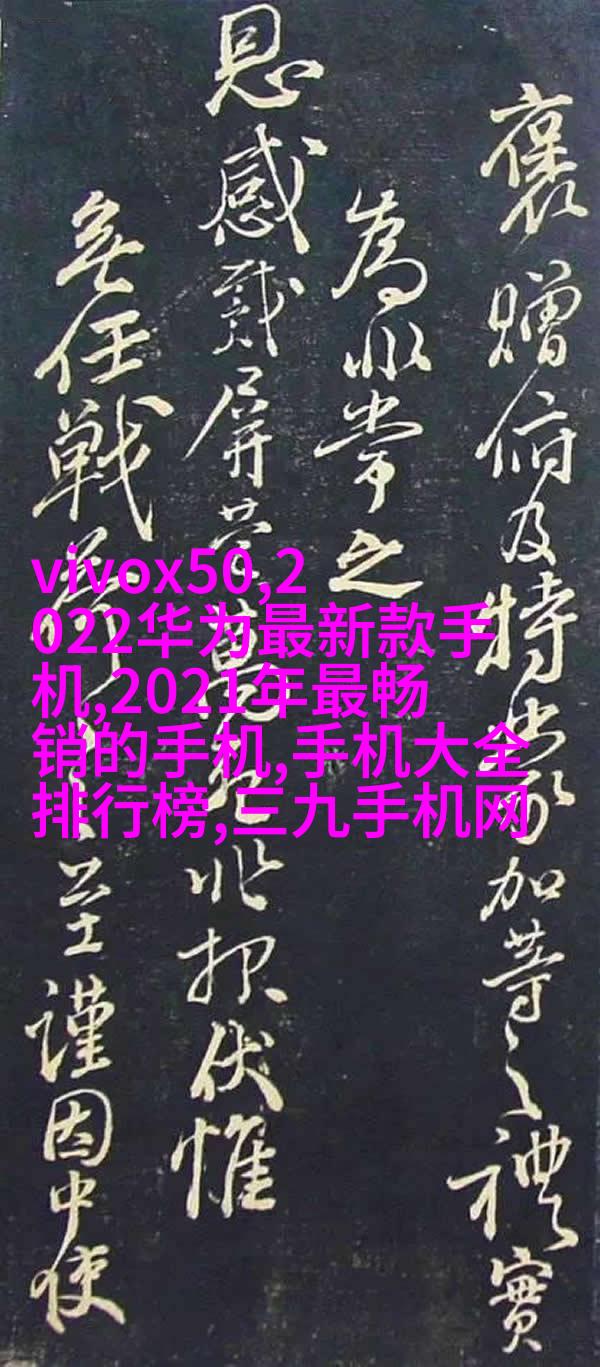 褒贈俯及特出加等之禮實
為非常之
恩感戴屏營萬非報伏惟
無任戰之至謹因中使
vivox50,2
022华为最新款手
机,2021年最畅
销的手机,手机大全
排行榜,三九手机网